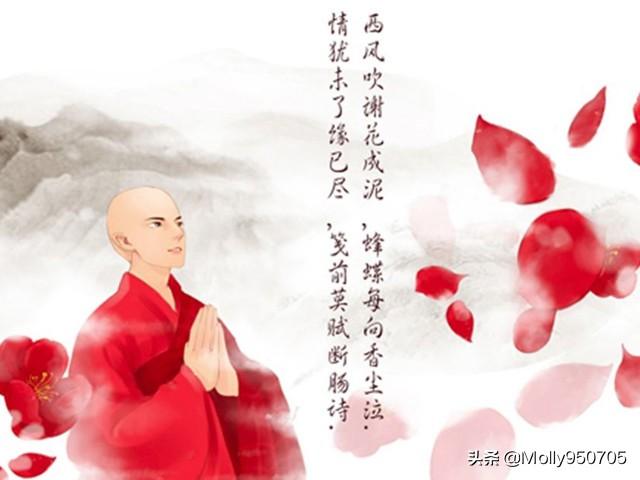 西风吹谢花成泥,蜂蝶每向香尘泣.
情犹未了缘已尽,笺前莫赋断肠诗.
头条 @Molly950705